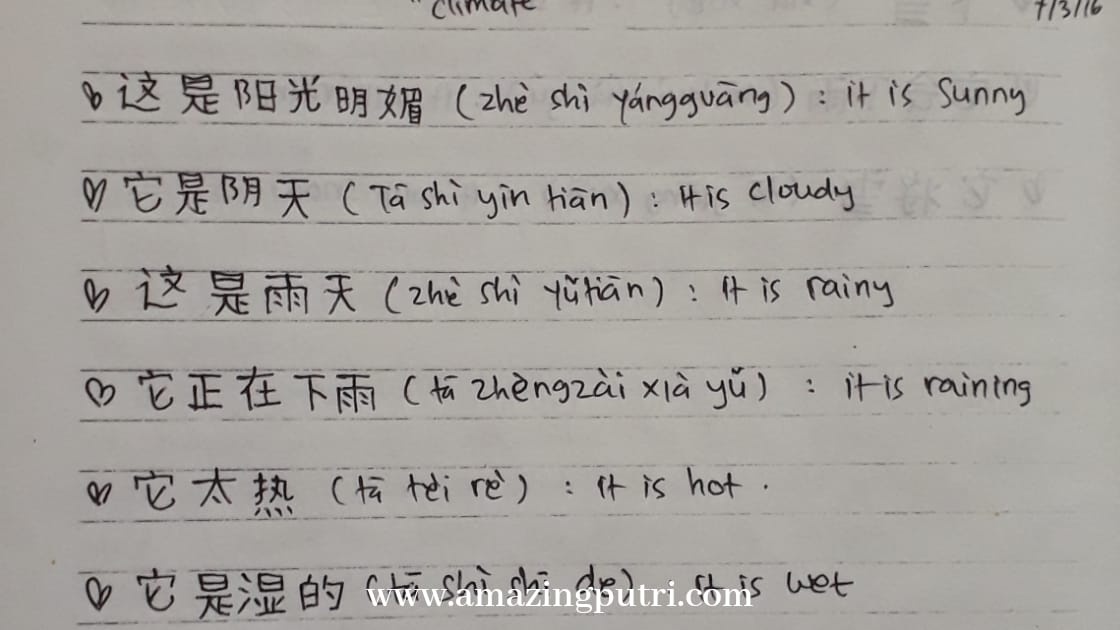 "climate 7/3/16
这是阳光明媚 (zhè shì yángguāng) : it is Sunny
它是阴天 (Tā shì yīn tiān) : It is cloudy
这是雨天 (zhè shì yǔtiān) : It is rainy
它正在下雨 (tā zhèngzài xià yǔ) : it is raining
它太热 (tā tèi rè) : It is hot.
它是湿的 (tā shì shī de) It is wet
www.amazingputri.com